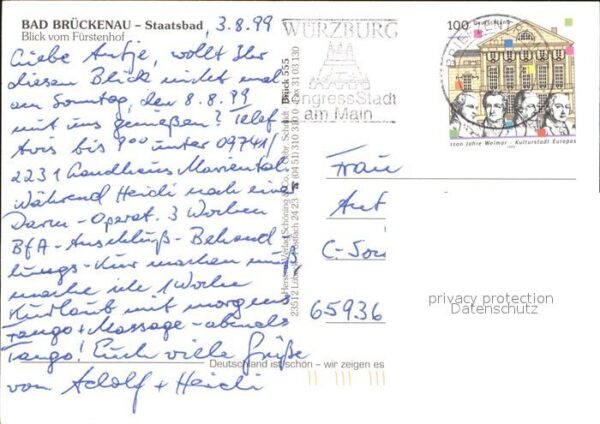 BAD BRÜCKENAU – Staatsbad
Blick vom Fürstenhof
3.8.99
Liebe Antje, wollt Ihr
diesen Blick nicht mal
am Sonntag, den 8.8.99
mit uns genießen? Telef.
Avis bis 9⁰⁰ unter 09741/
2231 Landhaus Mariental
Während Heidi nach einer
Darm-Operat. 3 Wochen
BfA-Anschluß-Behand-
lungs-Kur machen muß,
mache ich 1 Woche
Kurlaub mit morgens
Fango + Massage - abends
Tango! Euch viele Grüße
von Adolf + Heidi
Deutschland ist schön – wir zeigen es
Verlag Schöning & Co. + Gebr. Schmidt
Fax 31 03 130
Druck 555
WÜRZBURG
KongressStadt
am Main
100 Deutschland
1100 Jahre Weimar - Kulturstadt Europas
1999
Frau
Ant
C-Son
65936
privacy protection
Datenschutz